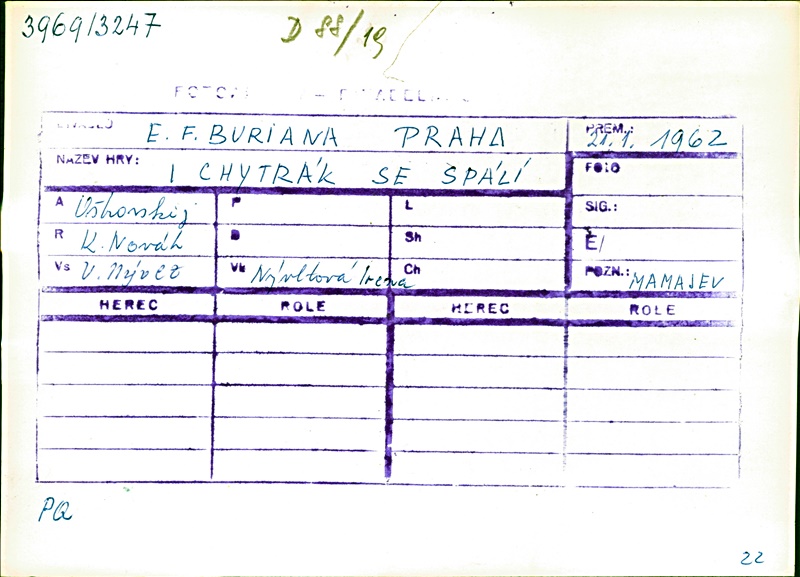 3969/3247
D 88/19
DIVADLO E. F. BURIANA PRAHA PREM.: 21. 1. 1962
NÁZEV HRY: I CHYTRÁK SE SPÁLÍ FOTO
A L SIG.:
R K. Novák Sh Č/
Vs V. Nývlt Vk Nývltová Irena Ch POZN.: MAMAJEV
HEREC ROLE HEREC ROLE
PQ
22